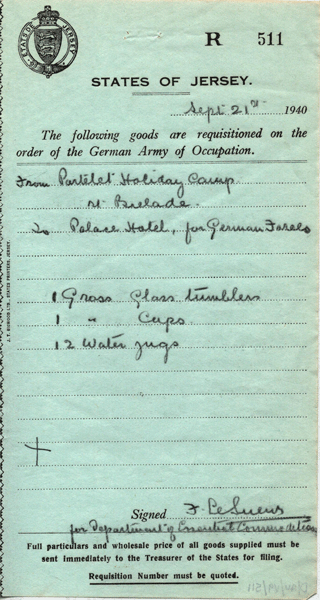 STATES OF JERSEY
R 511
STATES OF JERSEY.
Sept 21st 1940
The following goods are requisitioned on the
order of the German Army of Occupation.
From Portelet Holiday Camp
St Brelade.
To Palace Hotel, for German Forces
1 Gross Glass tumblers
1 " Cups
12 Water jugs
Signed F. Le Sueur
for Department of Essential Commodities
Full particulars and wholesale price of all goods supplied must be
sent immediately to the Treasurer of the States for filing.
Requisition Number must be quoted.